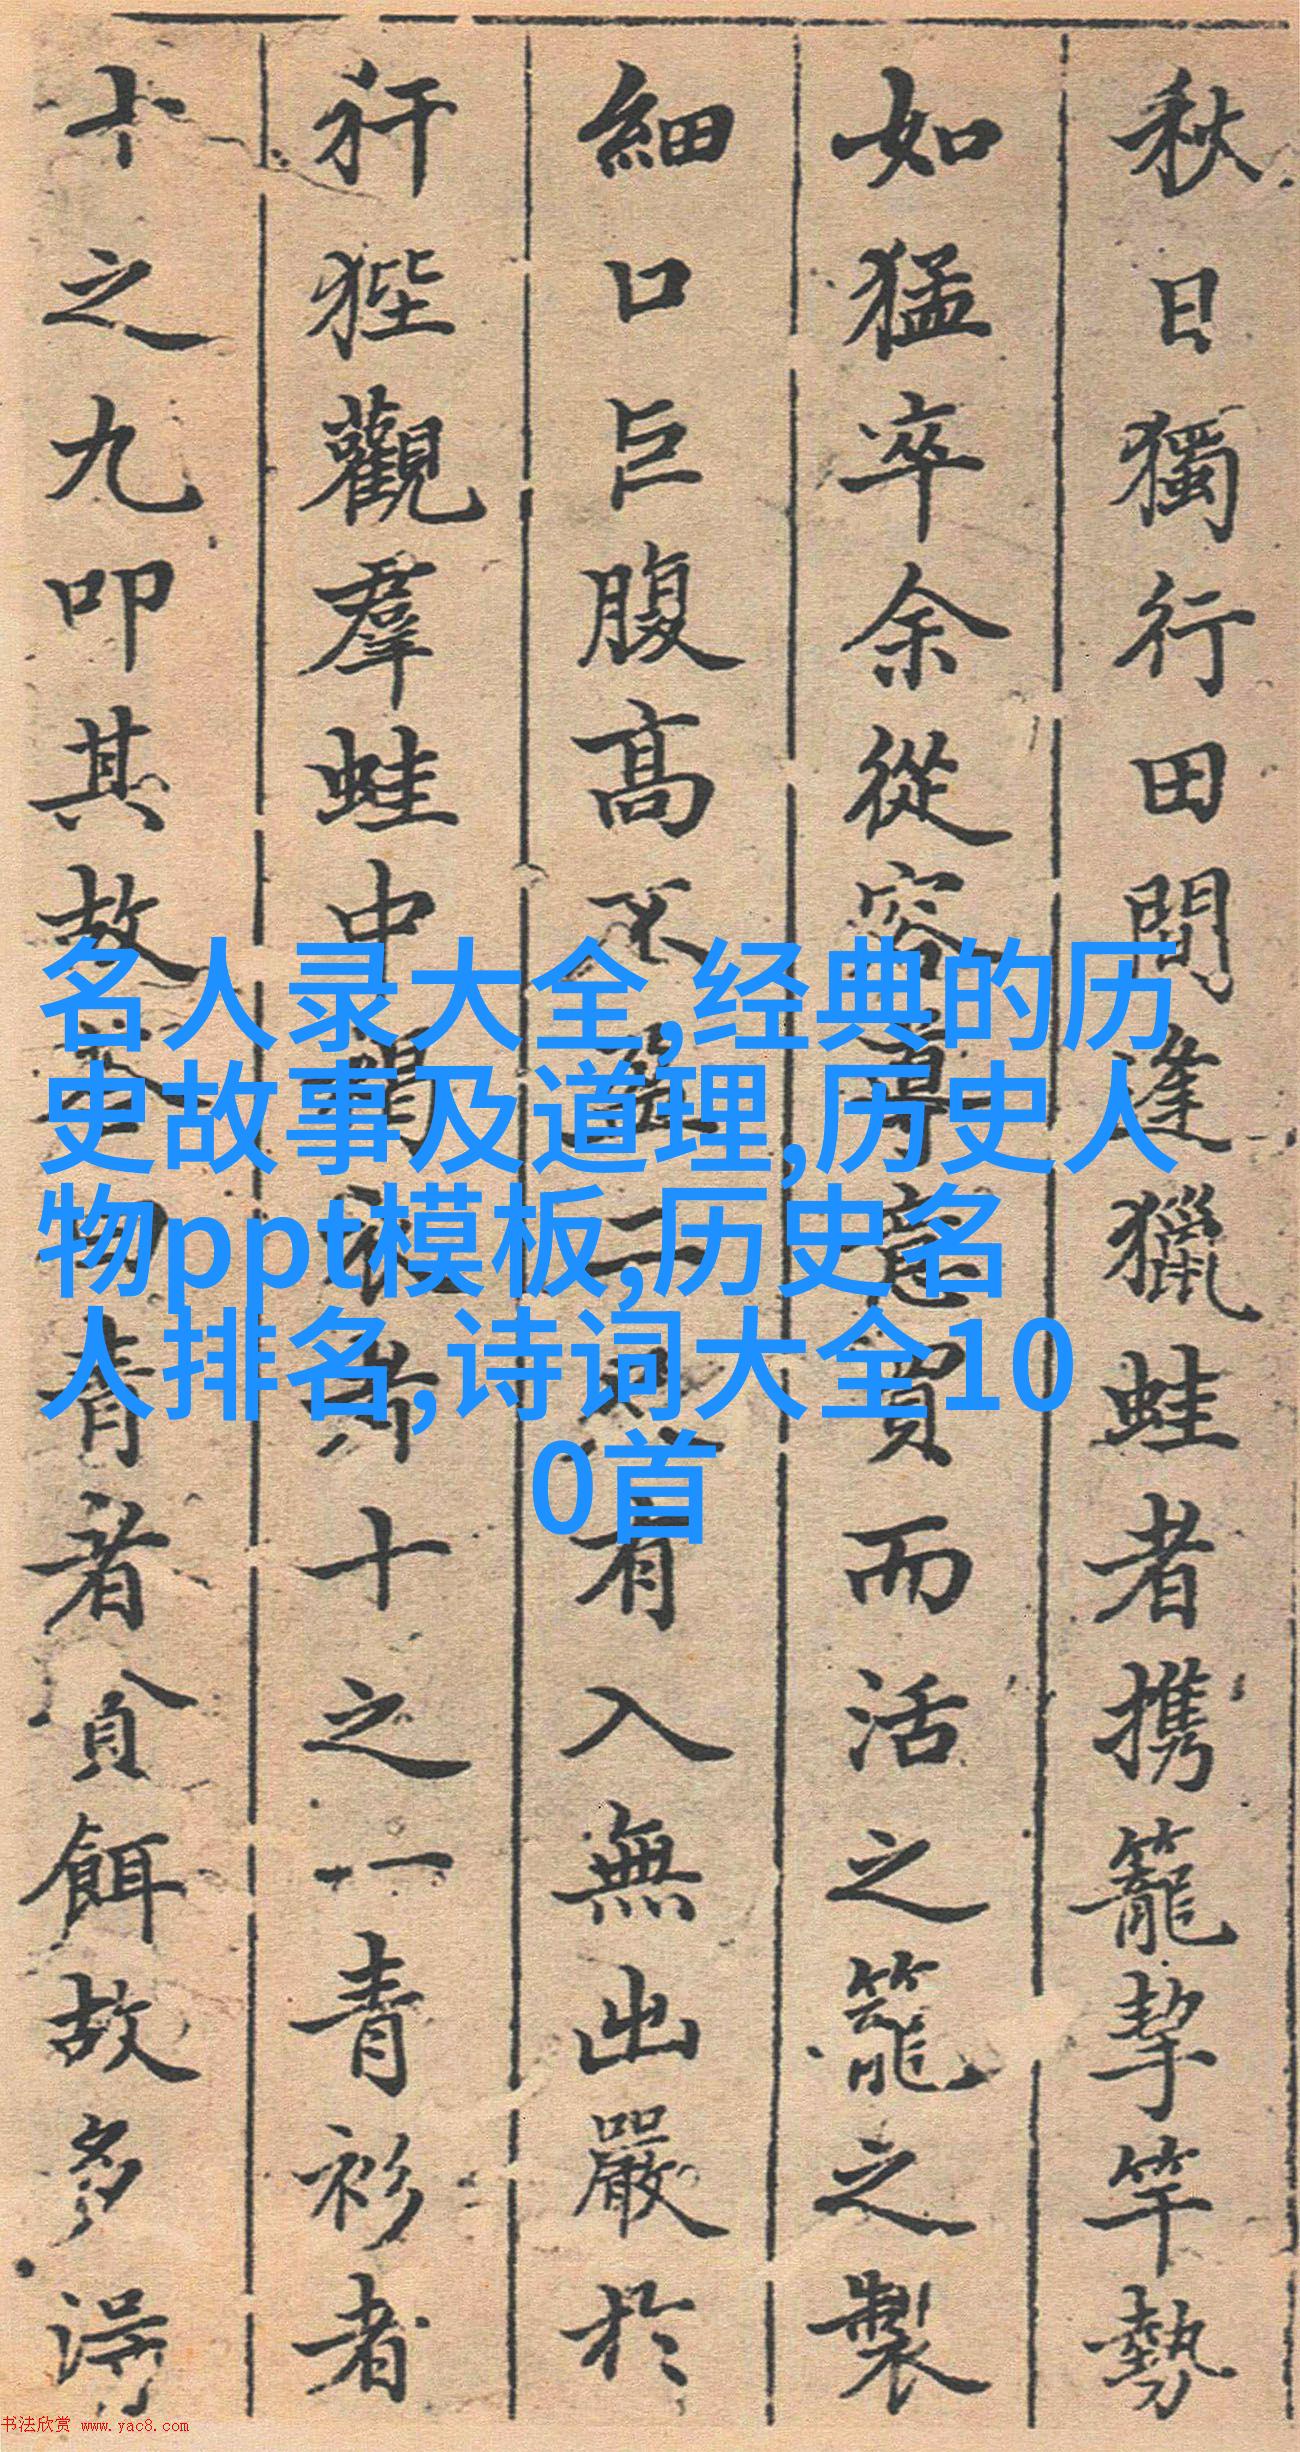 秋日獨行田間逢獵蛙者携籠挈竿勢
如猛卒余從容意買而活之籠之製
細口巨腹高不二有入無出嚴於
犴狴觀羣蛙中褐衣者十之一青衫者
十之九叩其故曰青者貪餌故多得
名人录大全,经典的历
史故事及道理,历史人
物ppt模板,历史名
人排名,诗词大全10
0首
书法欣赏 www.yac8.com